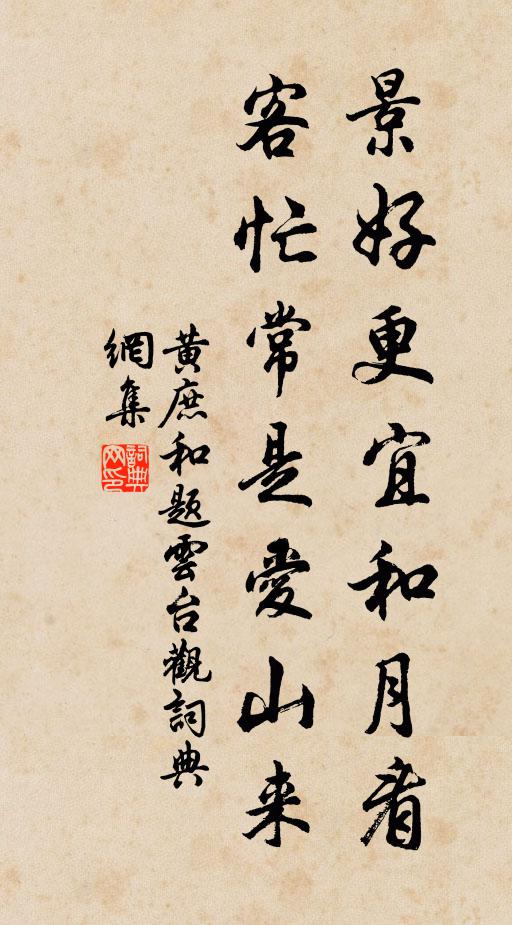 景好更宜和月看
客忙常是愛山来
黄庶和题雲台觀詞典
網集
詞典
网印